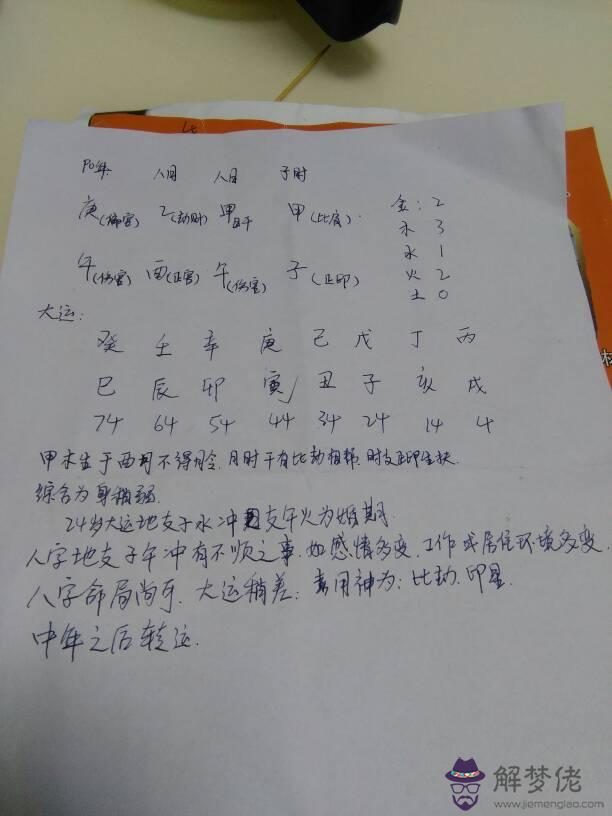 90年 八月 八日 子时
庚(偏官) 乙(劫财) 甲日干 甲(比肩)
午(伤官) 酉(正官) 午(伤官) 子(正印)
金:2
木 3
水 1
火 2
土 0
大运:
癸 壬 辛 庚 己 戊 丁 丙
巳 辰 卯 寅 丑 子 亥 戌
74 64 54 44 34 24 14 4
甲木生于酉月不得月令.月时干有比劫相帮.时支正印生扶.
综合为身稍弱.
24岁大运地支子水冲支午火为婚期.
八字地支子午冲有不顺之事.如感情多变.工作或居住环境多变.
八字命局尚可.大运稍差;喜用神为:比劫.印星.
中年之后转运.
解梦佬
www.jiemenglao.com